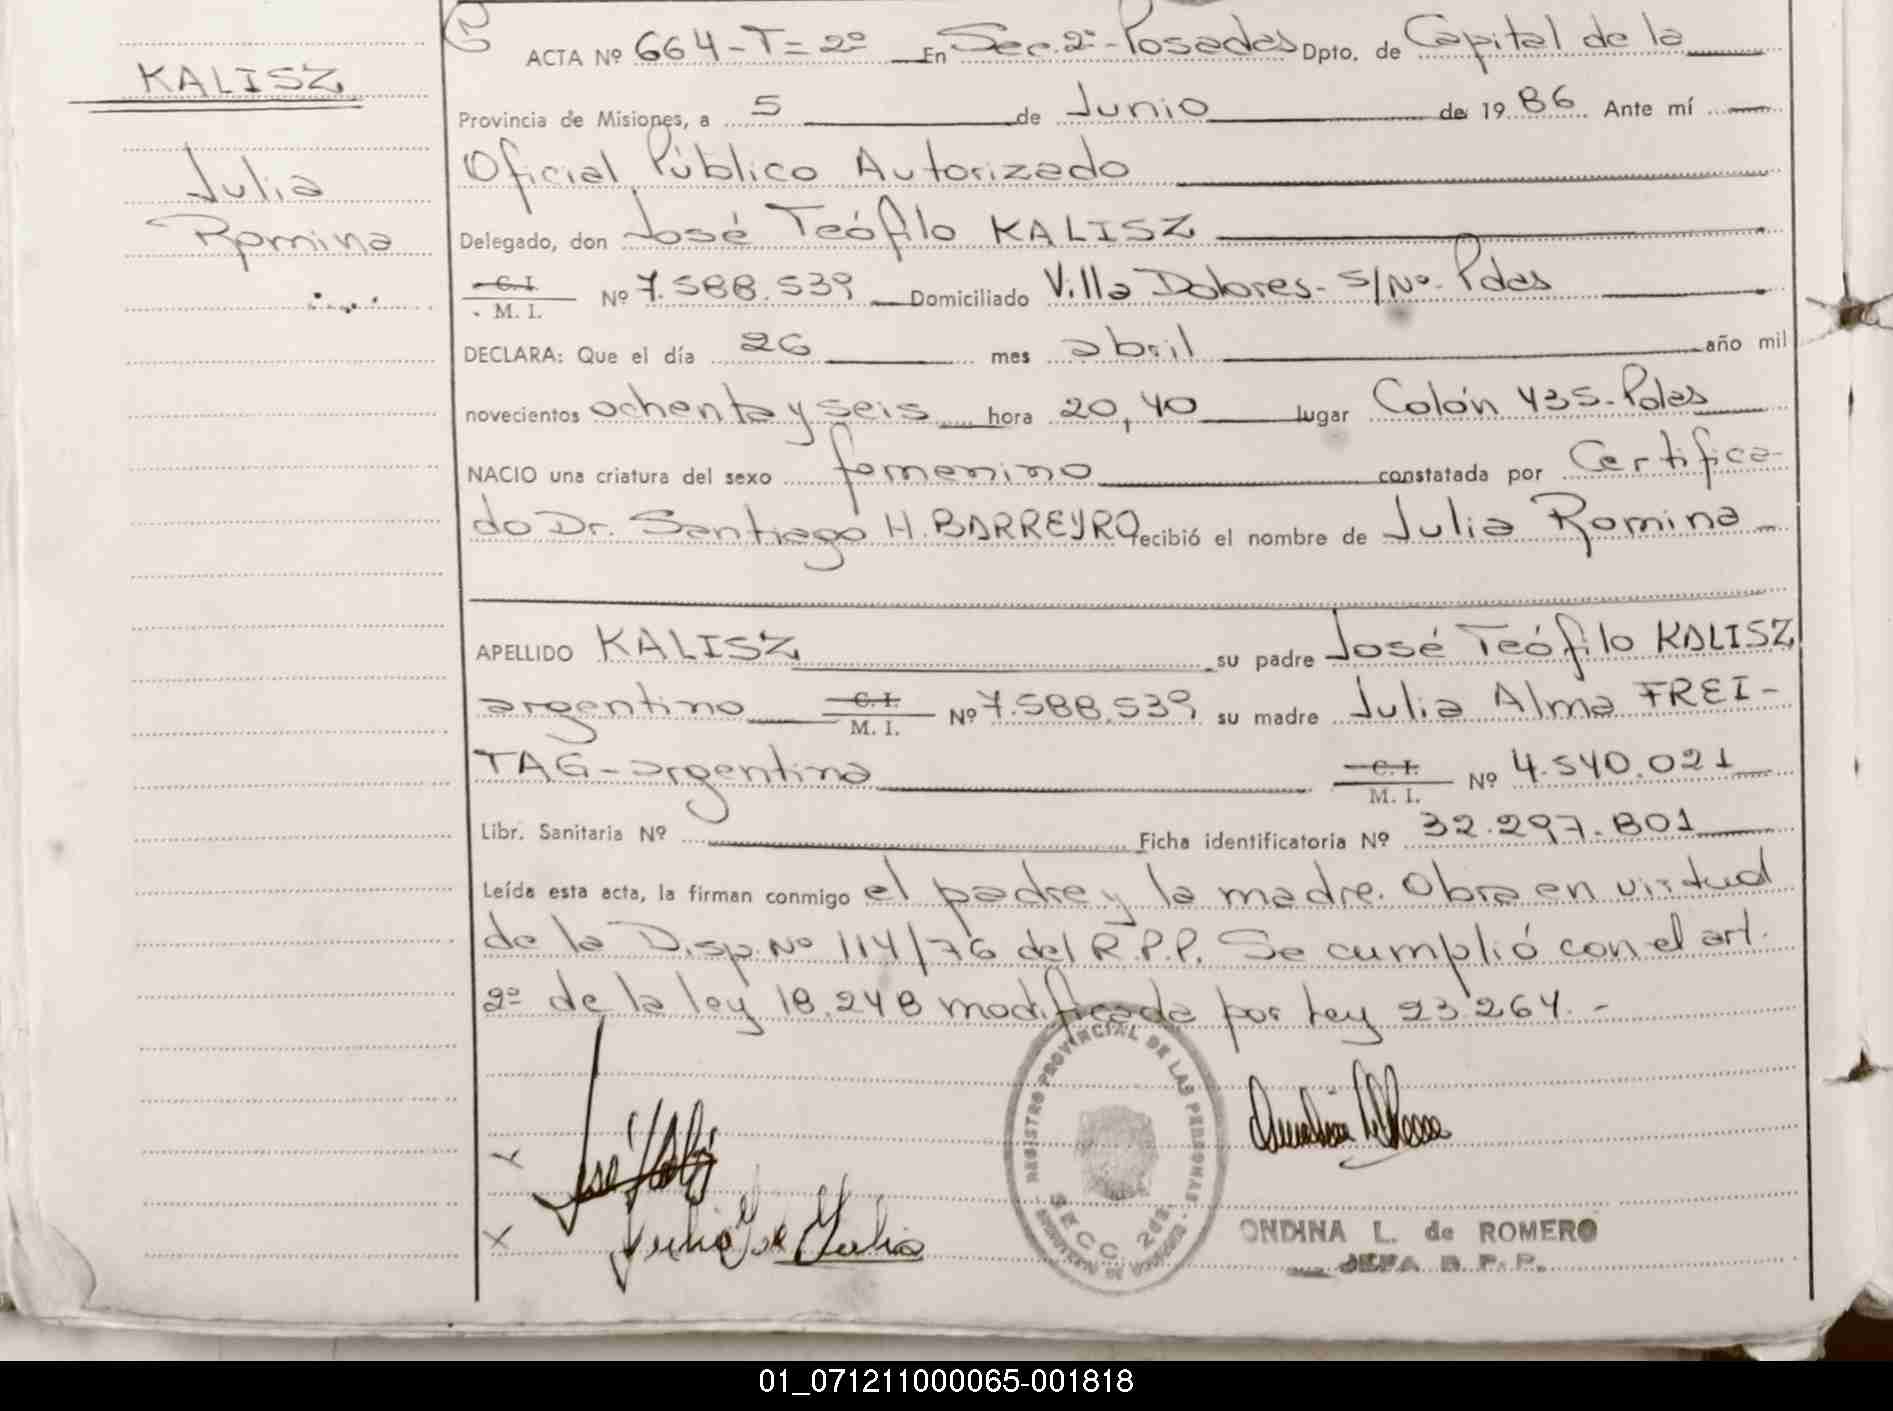 KALISZ
Julia
Romina
ACTA Nº 664-T=2º En Sec. 2º-Posadas Dpto. de Capital de la
Provincia de Misiones, a 5 de Junio de 19 86 Ante mí
Oficial Público Autorizado
Delegado, don José Teófilo KALISZ
C. I.
M. I. Nº 7.588.539 Domiciliado Villa Dolores- S/Nº- Pdas
DECLARA: Que el día 26 mes abril año mil
novecientos ochenta y seis hora 20,40 lugar Colón 435-Pdas
NACIO una criatura del sexo femenino constatada por Certifica-
do Dr. Santiago H. BARREYRO recibió el nombre de Julia Romina
APELLIDO KALISZ su padre José Teófilo KALISZ
argentino C. I. M. I. Nº 7.588.539 su madre Julia Alma FREI-
TAG-argentina C. I. M. I. Nº 4.540.021
Libr. Sanitaria Nº Ficha identificatoria Nº 32.297.801
Leída esta acta, la firman conmigo el padre y la madre. Obra en virtud
de la Disp. Nº 114/76 del R.P.P. Se cumplió con el art.
2º de la ley 18.248 modificada por Ley 23.264.-
REGISTRO PROVINCIAL DE LAS PERSONAS
SECC. 2da.
ONDINA L. de ROMERO
JEFA R. P. P.
01_071211000065-001818